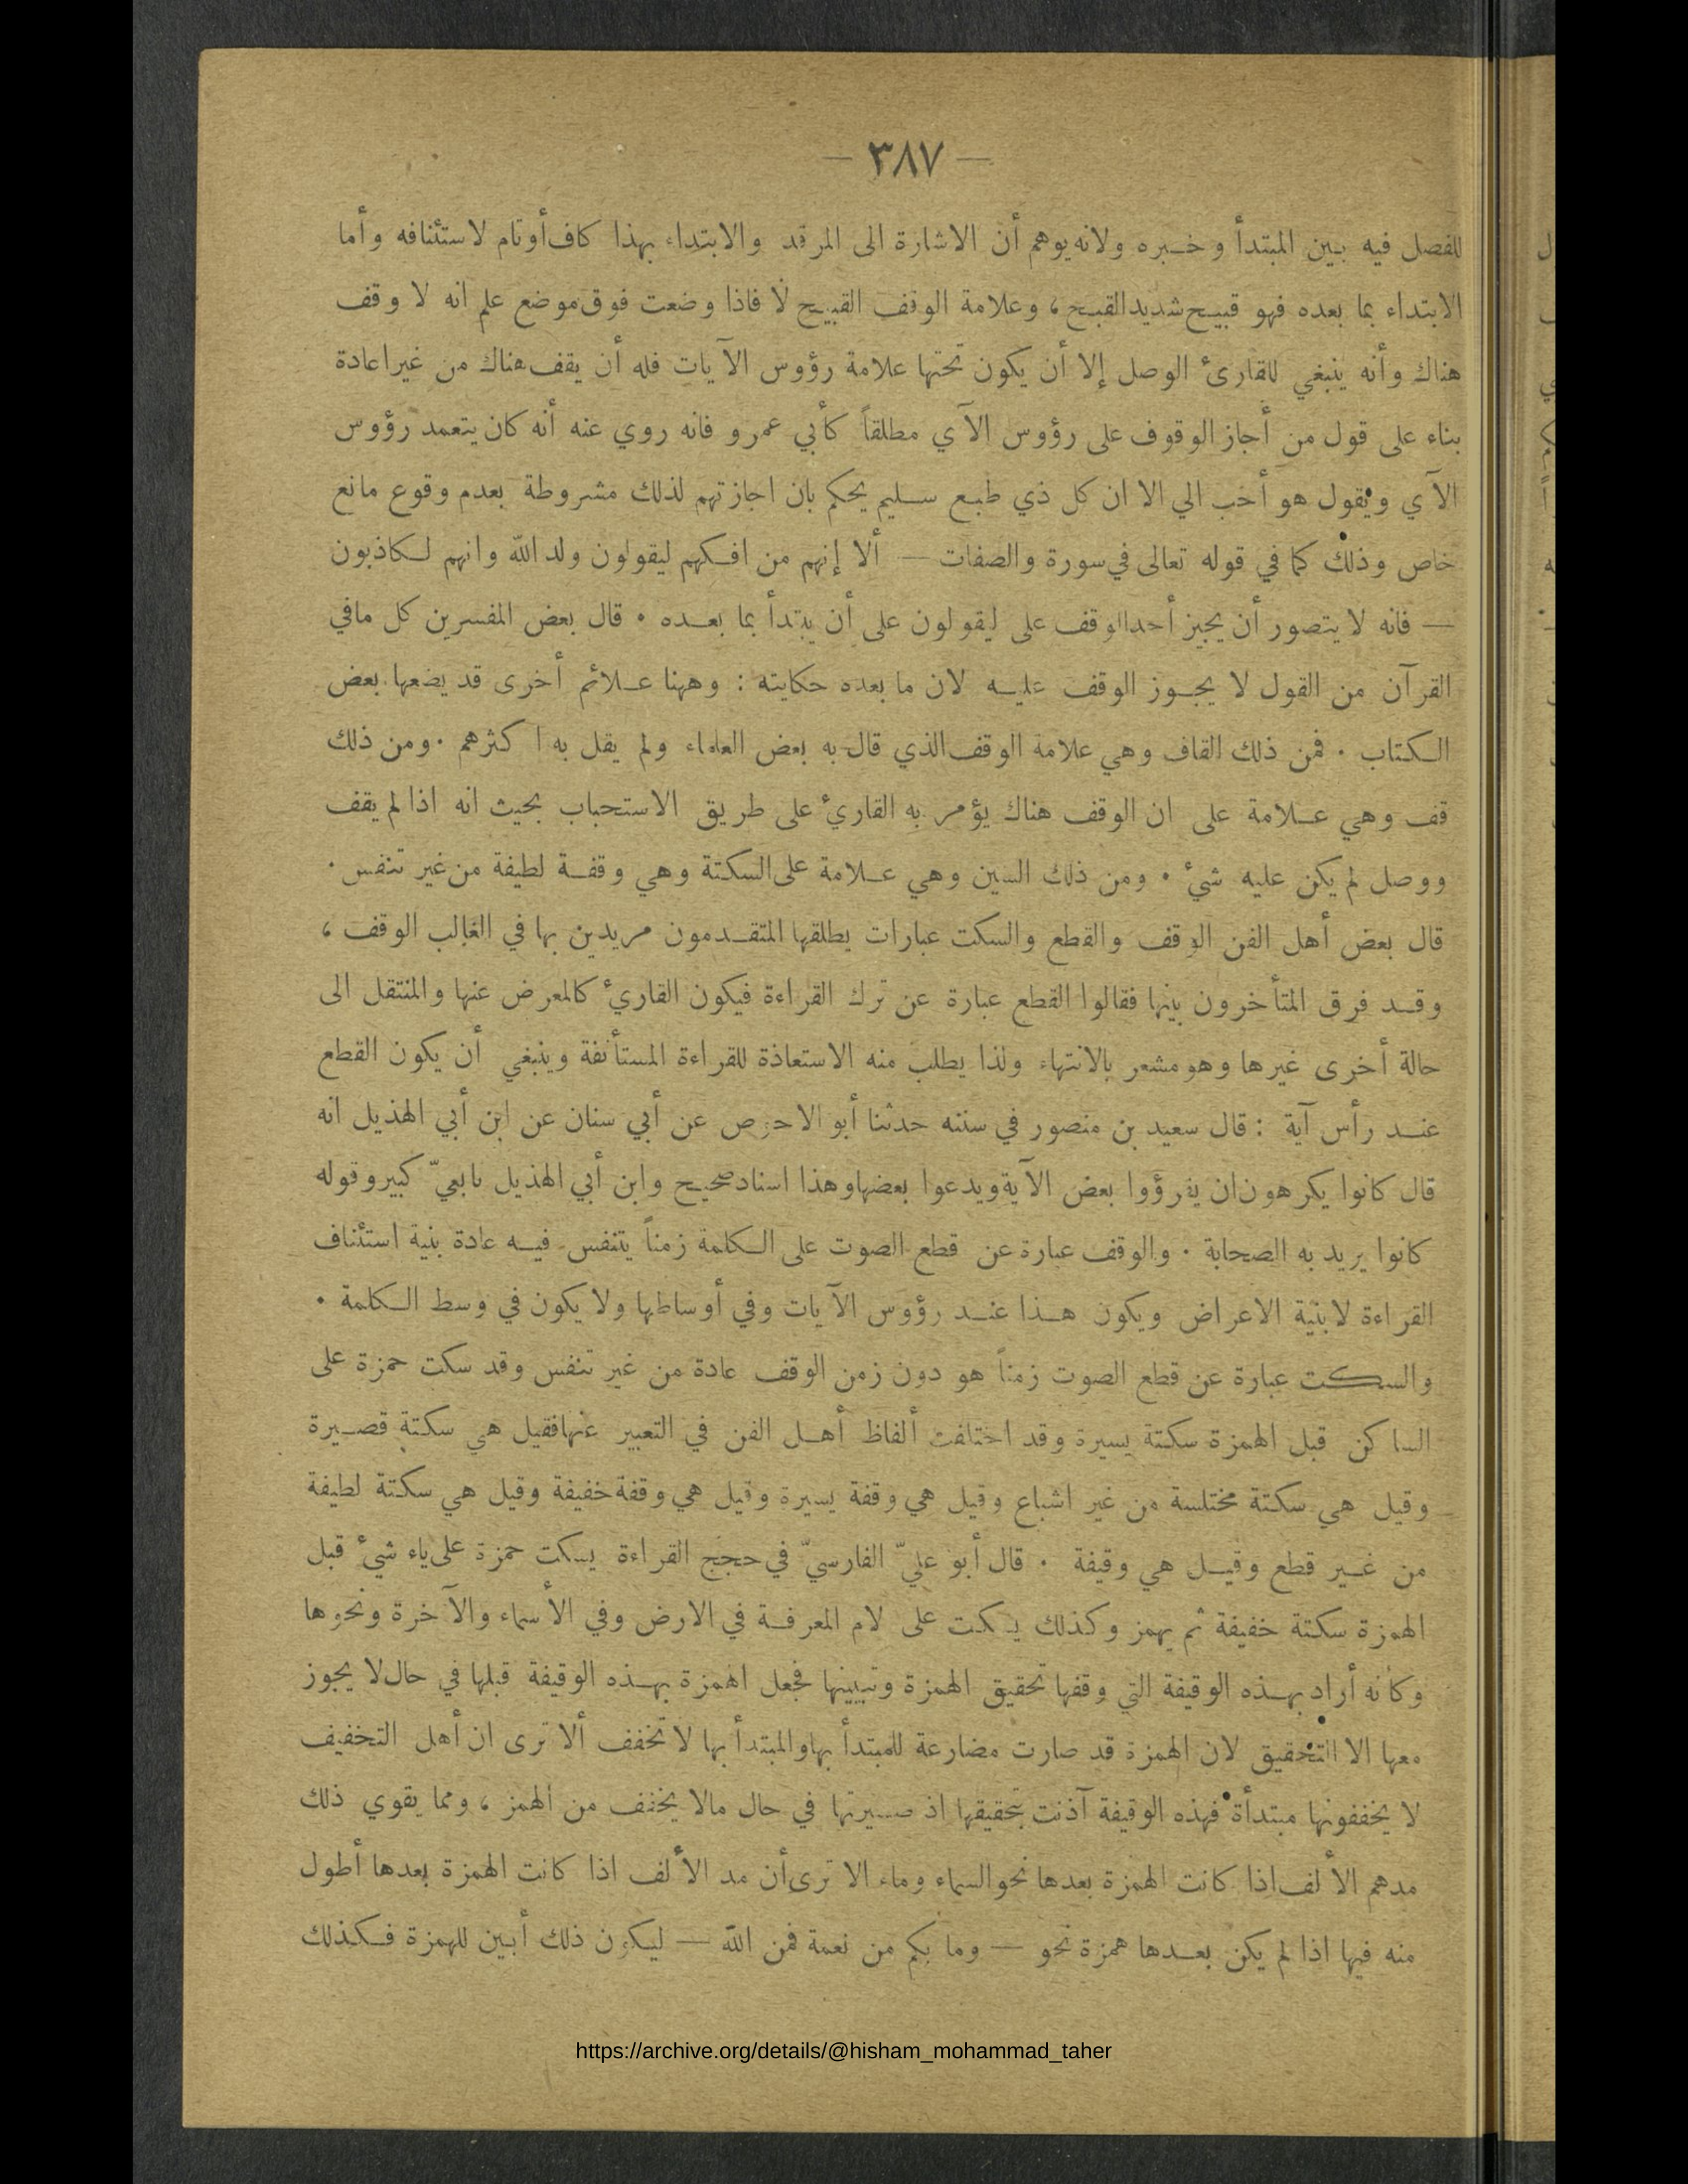 — ٣٨٧ —
للفصل فيه بين المبتدأ وخبره ولانه يوهم أن الاشارة الى المرقد والابتداء بهذا كاف أو تام لاستئنافه وأما
الابتداء بما بعده فهو قبيح شديد القبح ، وعلامة الوقف القبيح لا فاذا وضعت فوق موضع علم انه لا وقف
هناك وأنه ينبغي للقارئ الوصل إلا أن يكون تحتها علامة رؤوس الآيات فله أن يقف هناك من غير اعادة
بناء على قول من أجاز الوقوف على رؤوس الآي مطلقاً كأبي عمرو فانه روي عنه أنه كان يتعمد رؤوس
الآي ويقول هو أحب الي الا ان كل ذي طبع سليم يحكم بان اجازتهم لذلك مشروطة بعدم وقوع مانع
خاص وذلك كما في قوله تعالى في سورة والصفات — ألا إنهم من افكهم ليقولون ولد الله وانهم لكاذبون
— فانه لا يتصور أن يجيز أحد الوقف على ليقولون على أن يبتدأ بما بعده ٠ قال بعض المفسرين كل ما في
القرآن من القول لا يجوز الوقف عليه لان ما بعده حكايته : وههنا علائم أخرى قد يضعها بعض
الكتاب ٠ فمن ذلك القاف وهي علامة الوقف الذي قال به بعض العلماء ولم يقل به اكثرهم ٠ ومن ذلك
قف وهي علامة على ان الوقف هناك يؤمر به القارئ على طريق الاستحباب بحيث انه اذا لم يقف
ووصل لم يكن عليه شيء ٠ ومن ذلك السين وهي علامة على السكتة وهي وقفة لطيفة من غير تنفس ٠
قال بعض أهل الفن الوقف والقطع والسكت عبارات يطلقها المتقدمون مريدين بها في الغالب الوقف ،
وقد فرق المتأخرون بينها فقالوا القطع عبارة عن ترك القراءة فيكون القارئ كالمعرض عنها والمنتقل الى
حالة أخرى غيرها وهو مشعر بالانتهاء ولذا يطلب منه الاستعاذة للقراءة المستأنفة وينبغي أن يكون القطع
عند رأس آية : قال سعيد بن منصور في سننه حدثنا أبو الاحوص عن أبي سنان عن ابن أبي الهذيل انه
قال كانوا يكرهون ان يقرؤوا بعض الآية ويدعوا بعضها وهذا اسناد صحيح وابن أبي الهذيل تابعيّ كبير وقوله
كانوا يريد به الصحابة ٠ والوقف عبارة عن قطع الصوت على الكلمة زمناً يتنفس فيه عادة بنية استئناف
القراءة لا بنية الاعراض ويكون هذا عند رؤوس الآيات وفي أوساطها ولا يكون في وسط الكلمة ٠
والسكت عبارة عن قطع الصوت زمناً هو دون زمن الوقف عادة من غير تنفس وقد سكت حمزة على
الساكن قبل الهمزة سكتة يسيرة وقد اختلفت ألفاظ أهل الفن في التعبير عنها فقيل هي سكتة قصيرة
وقيل هي سكتة مختلسة من غير اشباع وقيل هي وقفة يسيرة وقيل هي وقفة خفيفة وقيل هي سكتة لطيفة
من غير قطع وقيل هي وقيفة ٠ قال أبو عليّ الفارسيّ في حجج القراءة يسكت حمزة على ياء شيء قبل
الهمزة سكتة خفيفة ثم يهمز وكذلك يسكت على لام المعرفة في الارض وفي الأسماء والآخرة ونحوها
وكأنه أراد بهذه الوقيفة التي وقفها تحقيق الهمزة وتبيينها فجعل الهمزة بهذه الوقيفة قبلها في حال لا يجوز
معها الا التحقيق لان الهمزة قد صارت مضارعة للمبتدأ بها والمبتدأ بها لا تخفف ألا ترى ان أهل التخفيف
لا يخففونها مبتدأة فهذه الوقيفة آذنت بتحقيقها اذ صيرتها في حال مالا يخفف من الهمز ، ومما يقوي ذلك
مدهم الألف اذا كانت الهمزة بعدها نحو السماء وماء الا ترى أن مد الألف اذا كانت الهمزة بعدها أطول
منه فيها اذا لم يكن بعدها همزة نحو — وما بكم من نعمة فمن الله — ليكون ذلك أبين للهمزة فكذلك
https://archive.org/details/@hisham_mohammad_taher